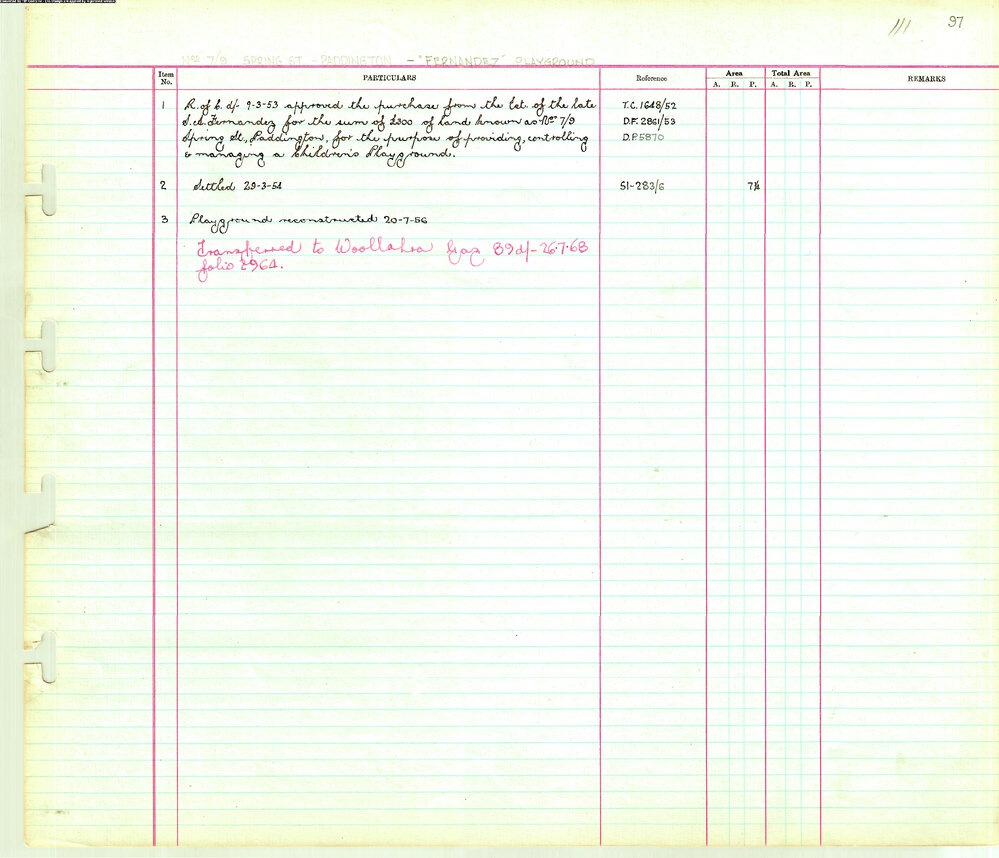 111 97
Nos 7/9 SPRING ST. PADDINGTON - "FERNANDEZ" PLAYGROUND
Item No. PARTICULARS Reference Area A. R. P. Total Area A. R. P. REMARKS
1 R. of C. d/- 9-3-53 approved the purchase from the Est. of the late T.C. 1648/52
Fernandez for the sum of £300 of land known as Nos 7/9 D.F. 2861/53
Spring St., Paddington, for the purpose of providing, controlling D.P. 5870
& managing a Children's Playground.
2 Settled 29-3-54 51-283/6 7¼
3 Playground reconstructed 20-7-56
Transferred to Woollahra Gaz 89 d/- 26.7.68
folio 2964.